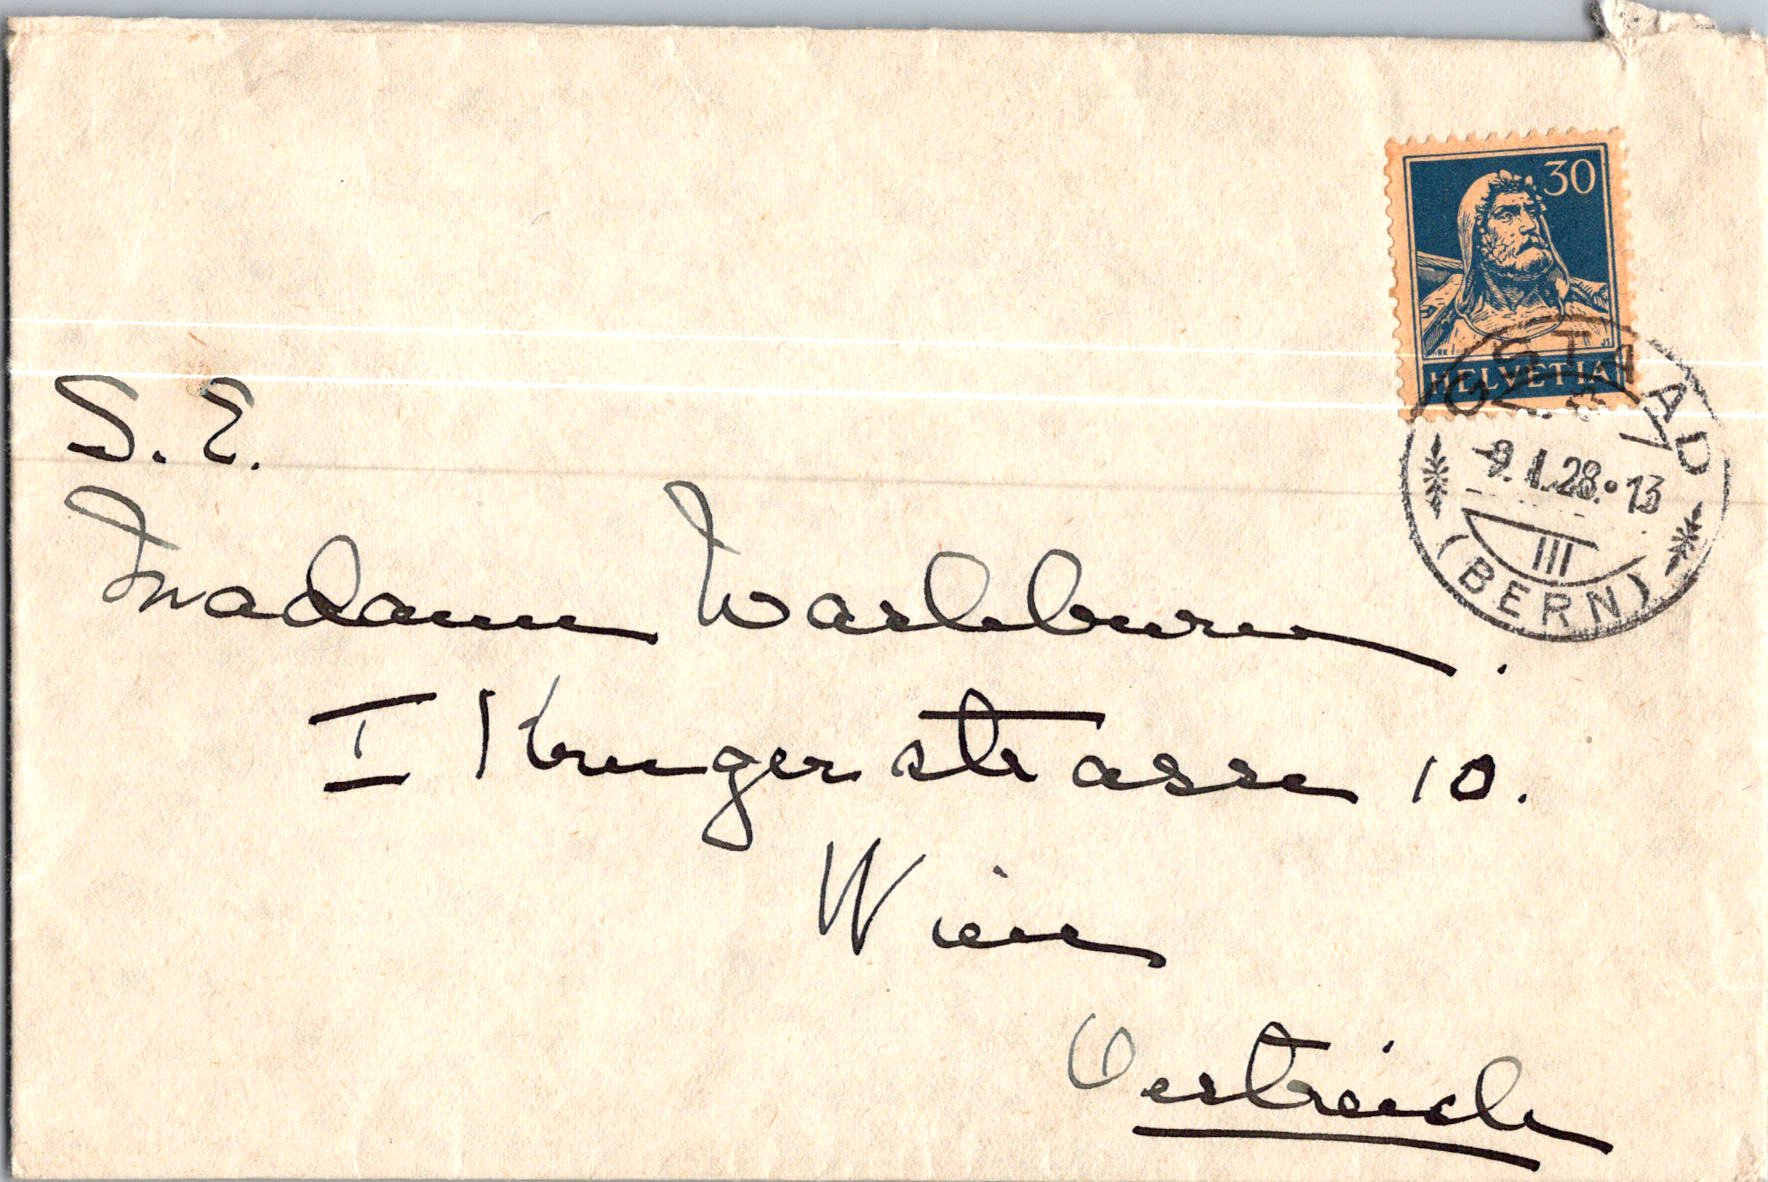 30
HELVETIA
GSTAAD
-9.I.28.•13
III
(BERN)
S.E.
Madame Washburn.
I Krugerstrasse 10.
Wien
Oestreich